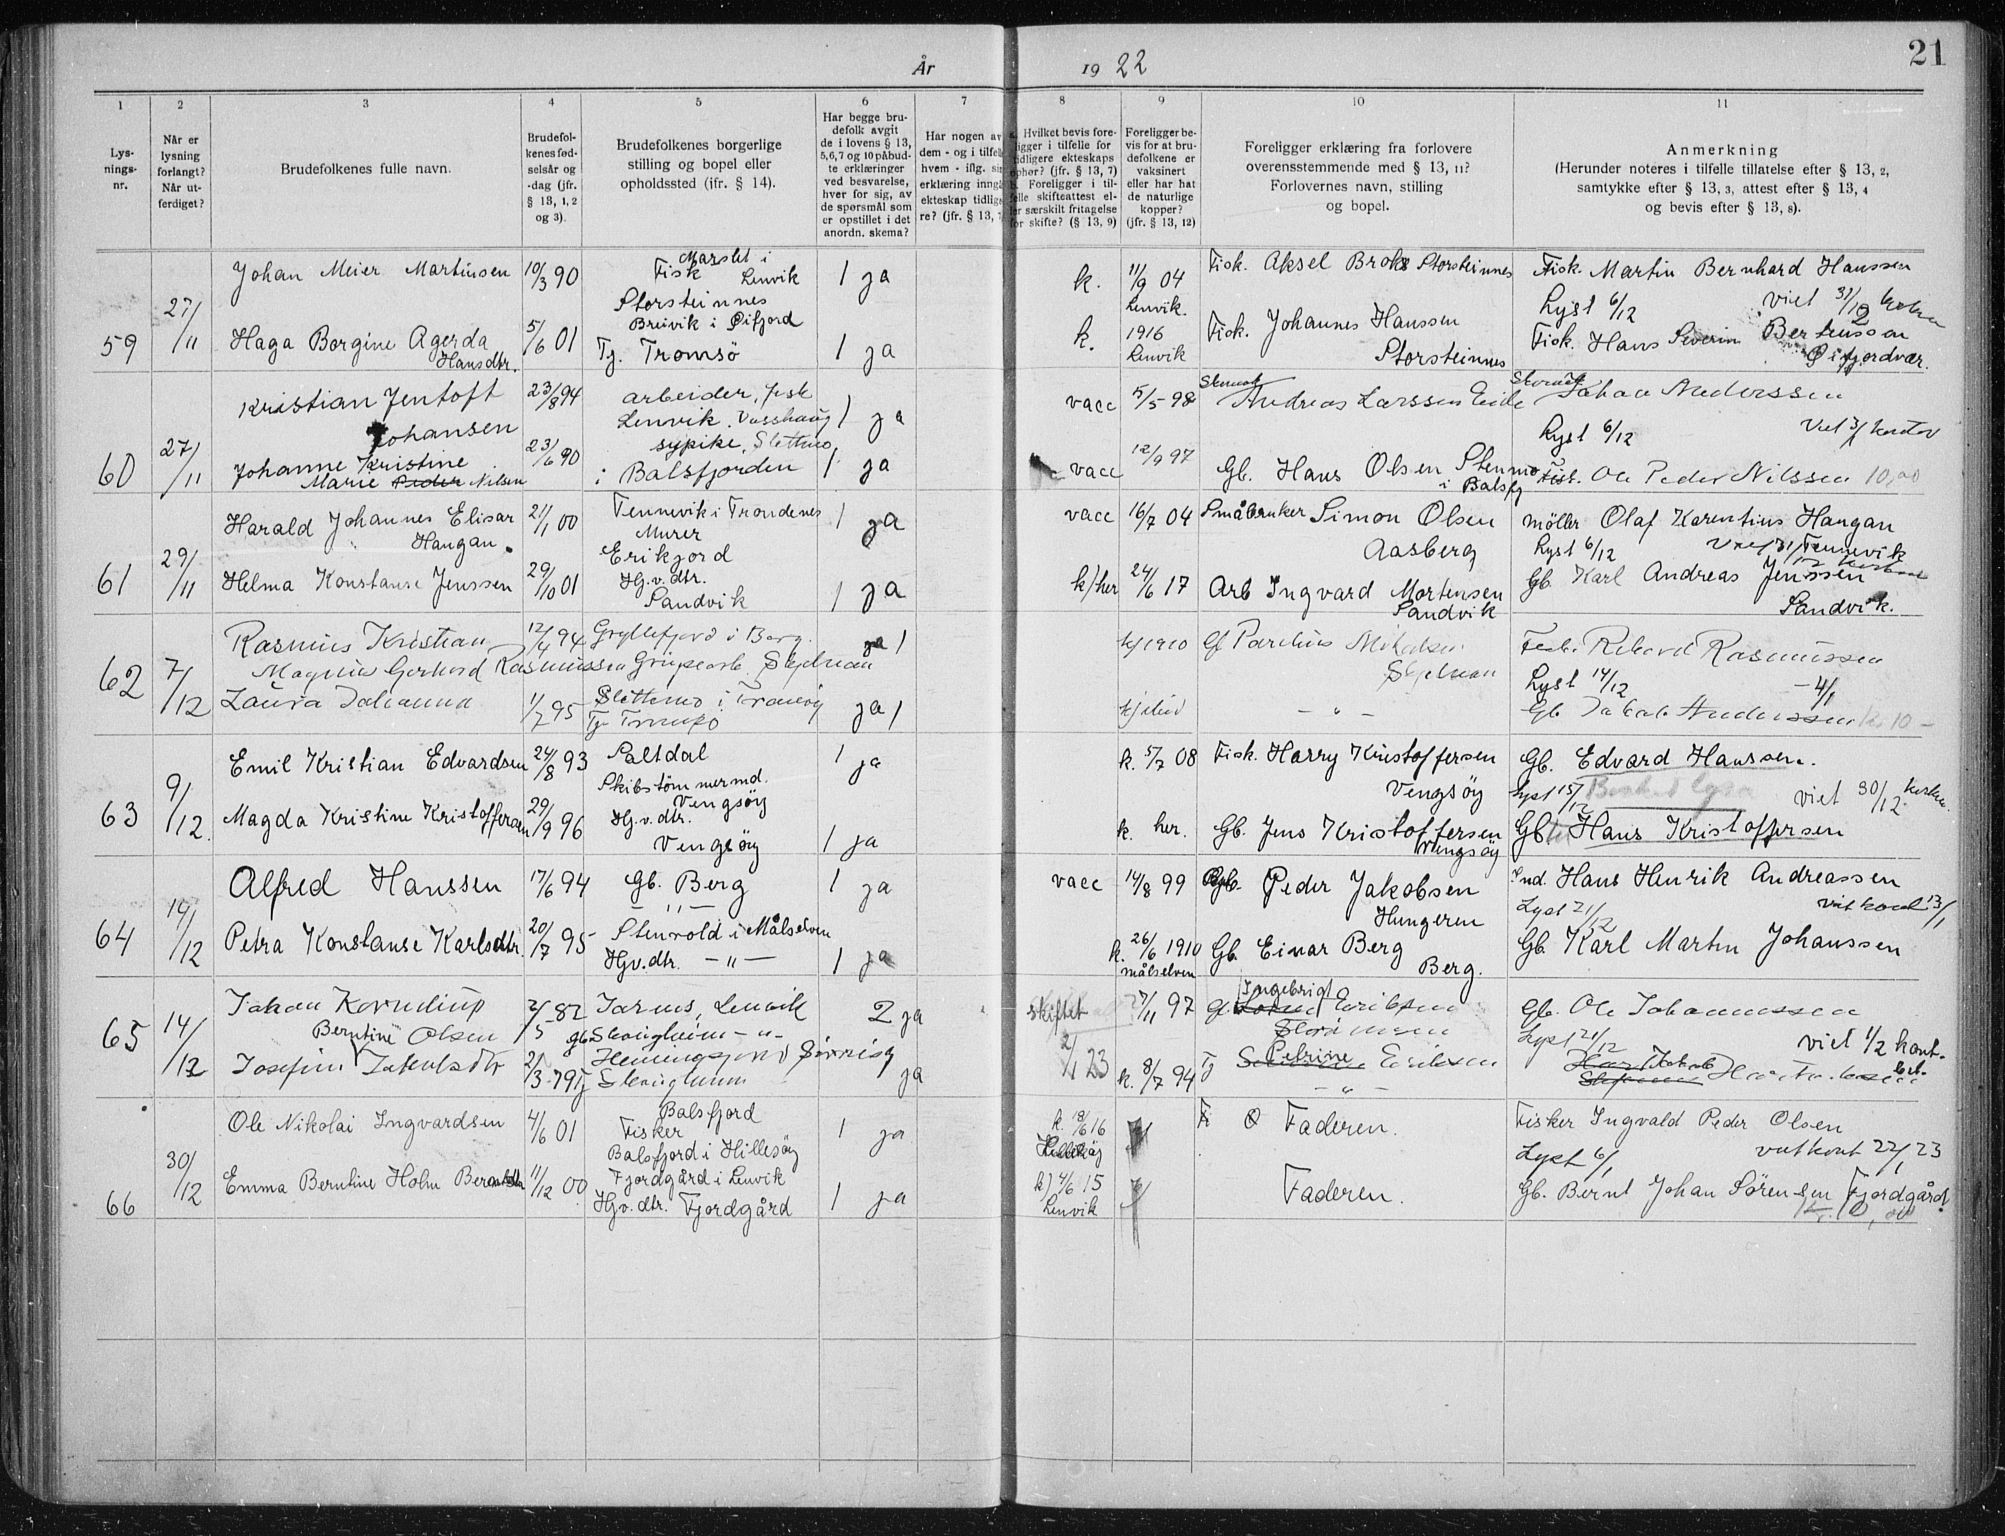 21
År 1922
1 2 3 4 5 6 7 8 9 10 11
Lys-
nings-
nr.
Når er
lysning
forlangt?
Når ut-
ferdiget?
Brudefolkenes fulle navn.
Brudefol-
kenes fød-
selsår og
-dag (jfr.
§ 13, 1, 2
og 3).
Brudefolkenes borgerlige
stilling og bopel eller
opholdssted (jfr. § 14).
Har begge bru-
defolk avgit
de i lovens § 13,
5,6,7 og 10 påbud-
te erklæringer
ved besvarelse,
hver for sig, av
de spørsmål som
er opstillet i det
anordn. skema?
Har nogen av
dem - og i tilfelle
hvem - iflg. sin
erklæring inngått
ekteskap tidlige-
re? (jfr. § 13,
Hvilket bevis fore-
ligger i tilfelle for
tidligere ekteskaps
ophør? (jfr. § 13, 7)
b. Foreligger i til-
felle skifteattest el-
ler særskilt fritagelse
for skifte? (§ 13, 9)
Foreligger be-
vis for at bru-
defolkene er
vaksinert
eller har hat
de naturlige
kopper?
(jfr. § 13, 12)
Foreligger erklæring fra forlovere
overensstemmende med § 13, 11?
Forlovernes navn, stilling
og bopel.
Anmerkning
(Herunder noteres i tilfelle tillatelse efter § 13, 2,
samtykke efter § 13, 3, attest efter § 13, 4
og bevis efter § 13, 8).
59 27/11
Johan Meier Martinsen 10/3 90 Fisk Lenvik 1 ja
k. 11/9 04 Lenvik. Fisk. Aksel Storsteinnes
Fisk. Martin Bernhard Hanssen
Lyst 6/12 viet 31/12
Haga Borgine Agerda Hansdtr. 5/6 01
Storsteinnes
Breivik i Øifjord
Tj. Tromsö 1 ja
k. 1916 Lenvik Fisk. Johannes Hanssen
Storsteinnes
Fisk. Hans Severin Berntussen
Øifjordvær.
60 27/11
Kristian Jentoft
Johansen 23/8 94 arbeider, fisk
Lenvik. 1 ja
vacc 5/5 98 Andreas Larssen Eide
Johan Anderssen
Lyst 6/12
Johanne Kristine
Marie Peder Nilsen 23/6 90 sypike, Slettmo
i Balsfjorden 1 ja
vacc 12/9 97 Gb. Hans Olsen Stenmo
i Balsfj
Fisk. Ole Peder Nilssen 10,00
61 29/11
Harald Johannes Elisar
Haugan. 21/1 00 Tennevik i Trondenes
Murer 1 ja
vacc 16/7 04 Småbruker Simon Olsen
Aasberg
möller Olaf Karentius Haugan
Lyst 6/12 Tennevik
Helma Konstanse Jenssen 29/10 01 Erikjord
Hj.v.dtr.
Sandvik 1 ja
k) her 24/6 17 Arb Ingvard Mortensen
Sandvik
Gb. Karl Andreas Jenssen
Sandvik.
62 7/12
Rasmus Kristian
Magnus Gerhard Rasmussen 12/4 94 Gryllefjord i Berg. ja 1
kj 1910
Rasmussen
Lyst 14/12 - 4/1
Laura Johanna 1/7 95 Slettmo i Tranöy
Tj. Tromsö ja 1
- " -
Gb. Jakob Anderssen kr 10 -
63 9/12.
Emil Kristian Edvardsen 24/8 93 Saltdal
Skibstömmermd.
Vengsöy 1 ja
k. 5/7 08 Fisk. Harry Kristoffersen
Vengsöy
Gb. Edvard Hanssen.
Lyst 15/12 viet 30/12.
Magda Kristine Kristoffersen 29/9 96 Hj.v.dtr.
Vengsöy 1 ja
k. her. Gb. Jens Kristoffersen
Vengsöy
Gb Hans Kristoffersen
64 19/12
Alfred Hanssen 17/6 94 Gb. Berg
- " - 1 ja
vacc 14/8 99 Peder Jakobsen
Hungeren
Ind. Hans Henrik Andreassen
Lyst 21/12 13/1
Petra Konstanse Karlsdtr. 20/7 95 Stenvold i Målselven
Hjv.dtr. - " - 1 ja
k. 26/6 1910
målselven Gb. Einar Berg
Berg.
Gb. Karl Martin Johanssen
65 14/12
Johan
Olsen 82 Lenvik 2 ja
skiftet 2/1 23 27/11 97 Ingebrigt Eriksen
Gb. Ole Johannessen
Lyst 21/12 viet 1/2 kont.
Josefine Berntine Jakobsdtr 21/3 79 ja
k. 8/7 94 Petrine Eriksen
- " -
66 30/12
Ole Nikolai Ingvardsen 4/6 01 Balsfjord
Fisker
Balsfjord i Hillesöy 1 ja
k. 18/6 16
Hillesöy Faderen.
Fisker Ingvald Peder Olsen
Lyst 6/1 22/1 23
Emma Berntine Holm 11/12 00 Fjordgård i Lenvik
Hjv.dtr. Fjordgård 1 ja
k) 4/6 15
Lenvik Faderen.
Gb. Bernt Johan Sörensen Fjordgård.
kr. 10,00